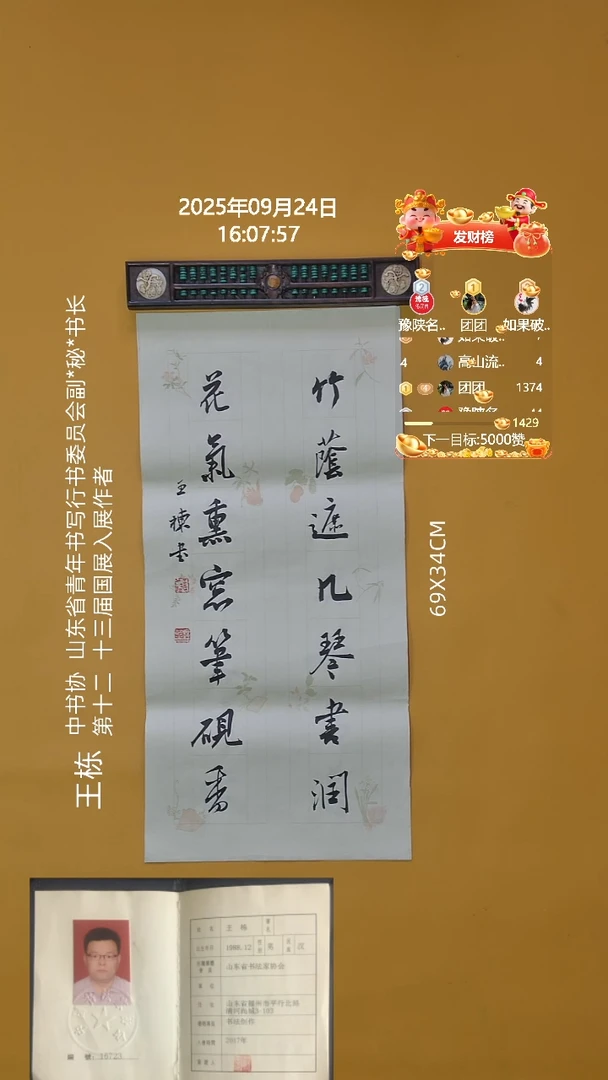 2025年09月24日
16:07:57
发财榜
豫陕名..
团团
如果破..
4
高山流..
4
团团
1374
1429
下一目标:5000赞
竹蔭遮几琴書潤
花氣熏窓筆硯香
王棟書
69X34CM
王栋
中书协 山东省青年书写行书委员会副*秘*书长
第十二 十三届国展入展作者
王 栋
1988.12
男
汉
山东省书法家协会
书法创作
2017年